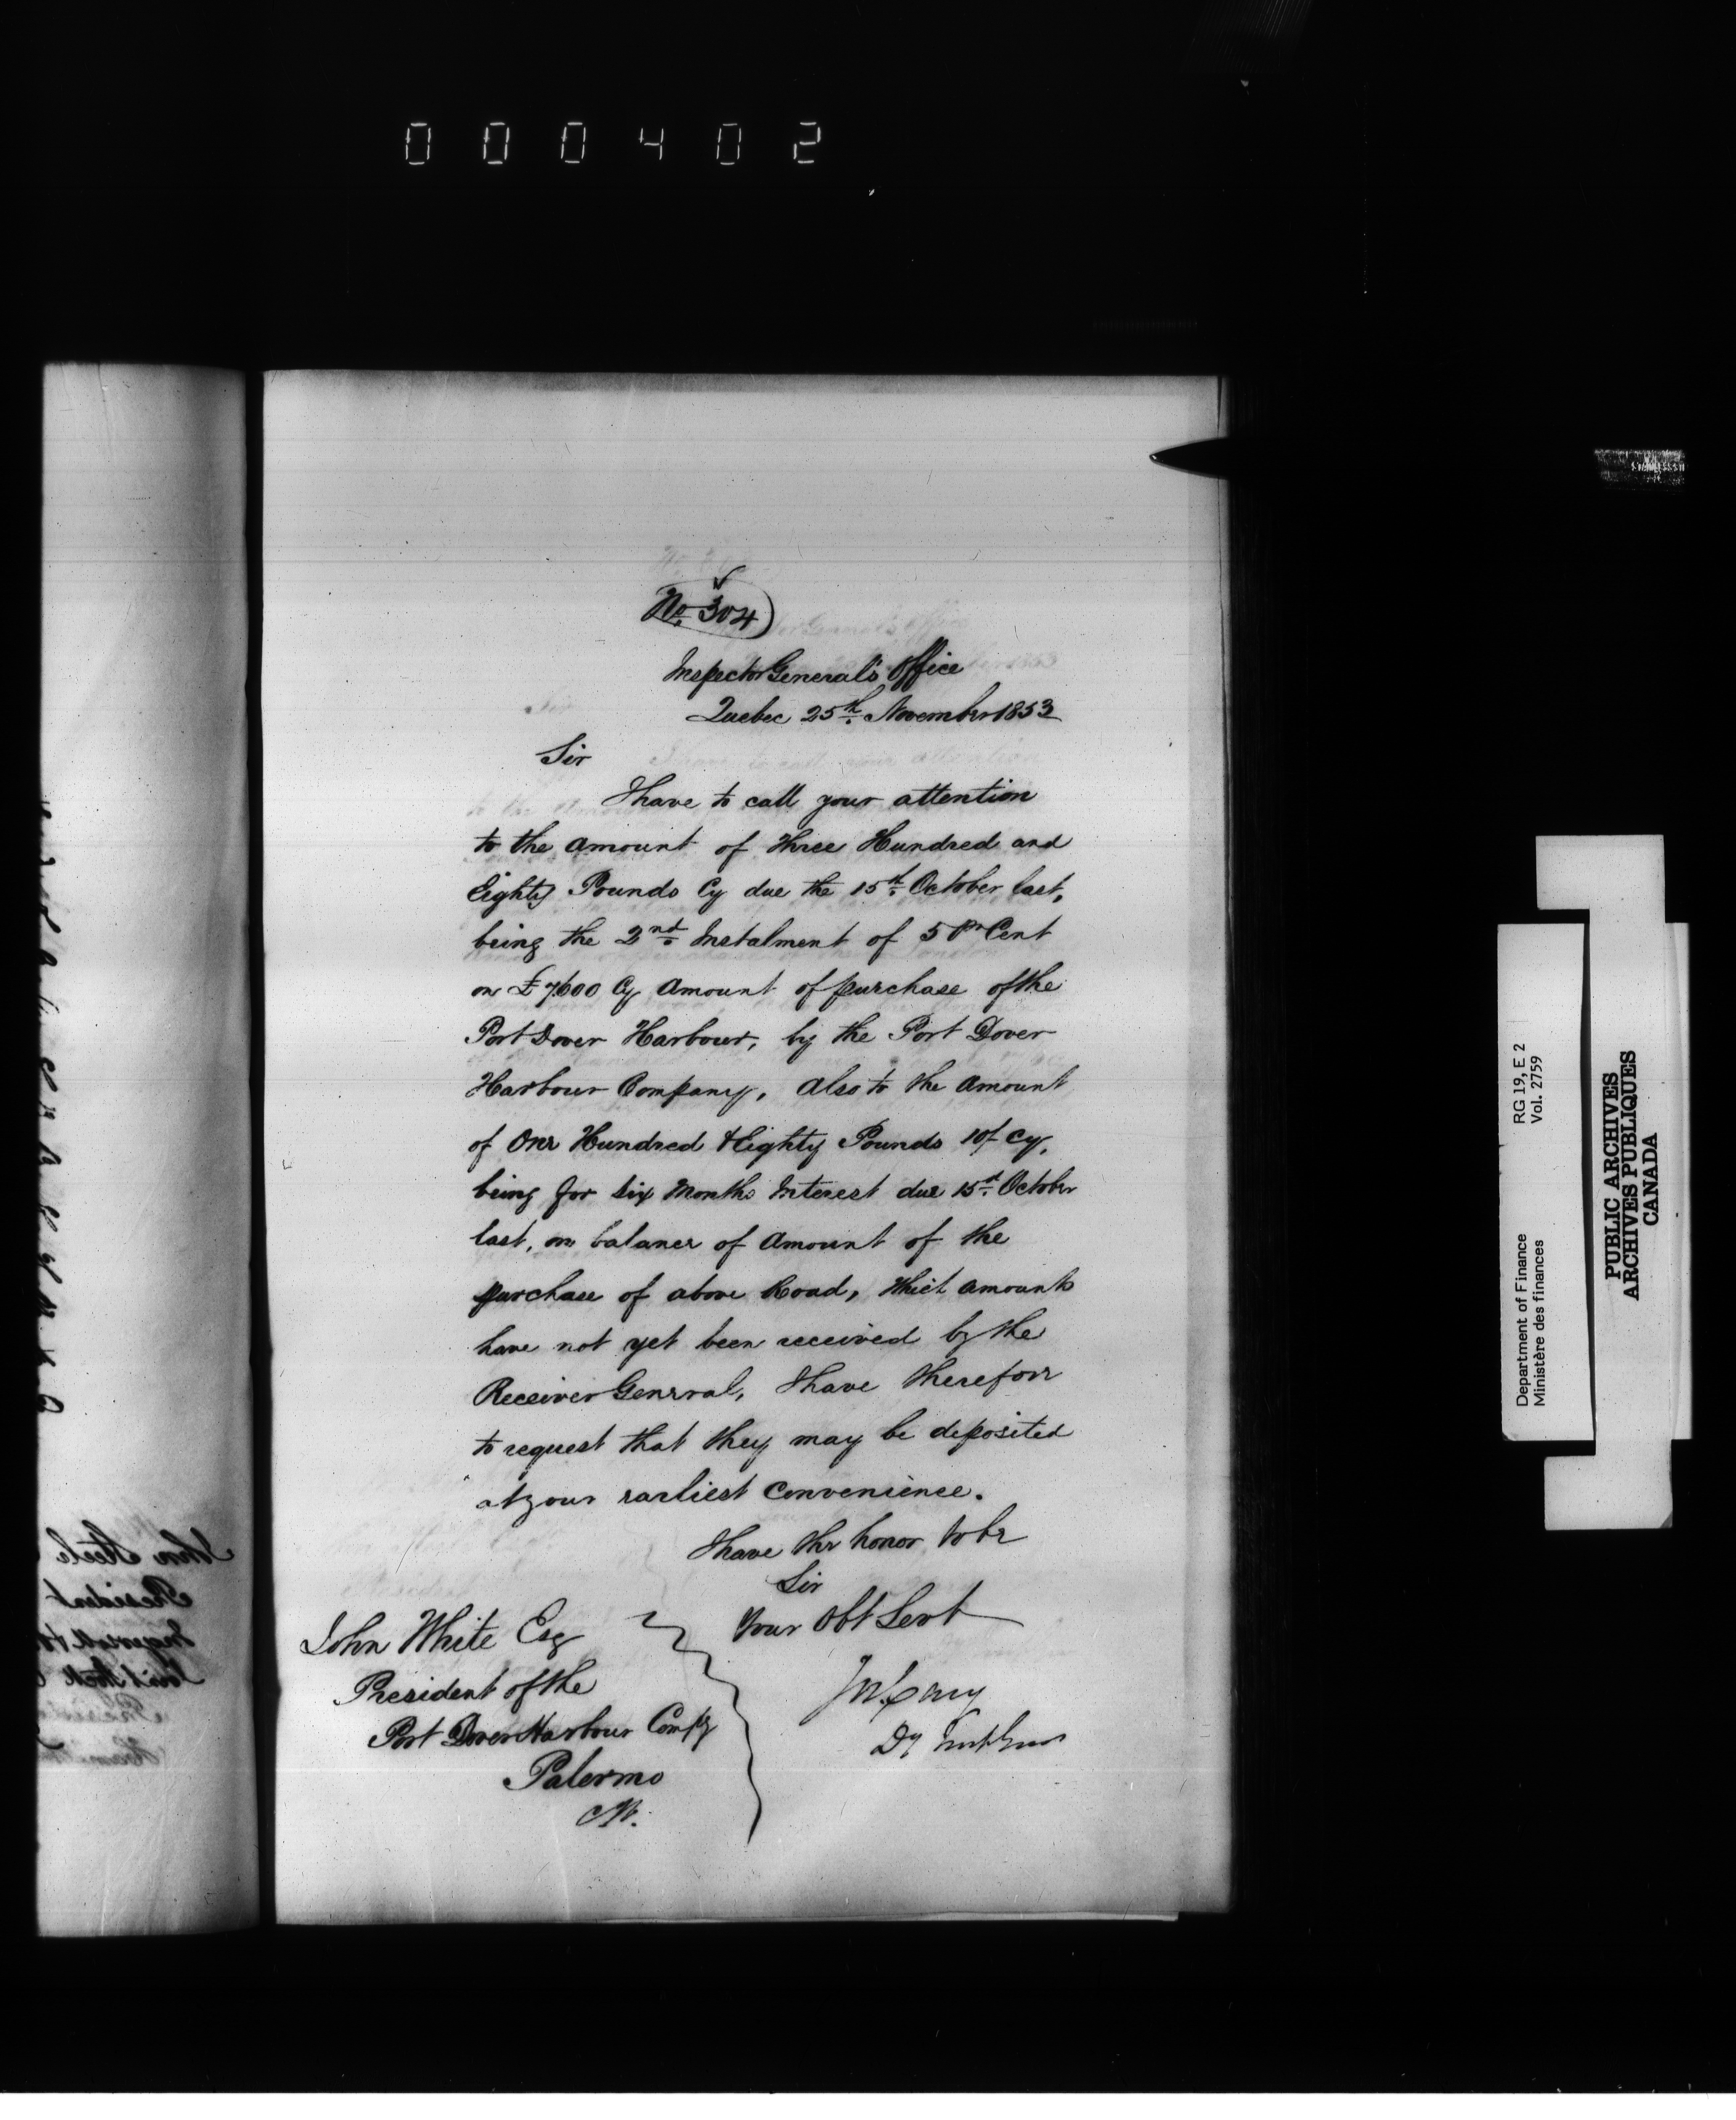 000402
No. 304
Inspector General's Office
Quebec 25th. November 1853
Sir
I have to call your attention
to the amount of Three Hundred and
Eighty Pounds Cy due the 15th. October last,
being the 2nd. Instalment of 5 Pr Cent
on £7600 Cy Amount of purchase of the
Port Dover Harbour, by the Port Dover
Harbour Company, also to the Amount
of One Hundred & Eighty Pounds 10/ Cy,
being for Six Months Interest due 15th. October
last, on balance of Amount of the
purchase of above Road, which amounts
have not yet been received by the
Receiver General, I have therefore
to request that they may be deposited
at your earliest Convenience.
I have the honor to be
Sir
Your Obt Servt
John White Esq
President of the
Port Dover Harbour Compy
Palermo
CW.
Jos Cary
Dy
RG 19, E 2
Vol. 2759
Department of Finance
Ministère des finances
PUBLIC ARCHIVES
ARCHIVES PUBLIQUES
CANADA